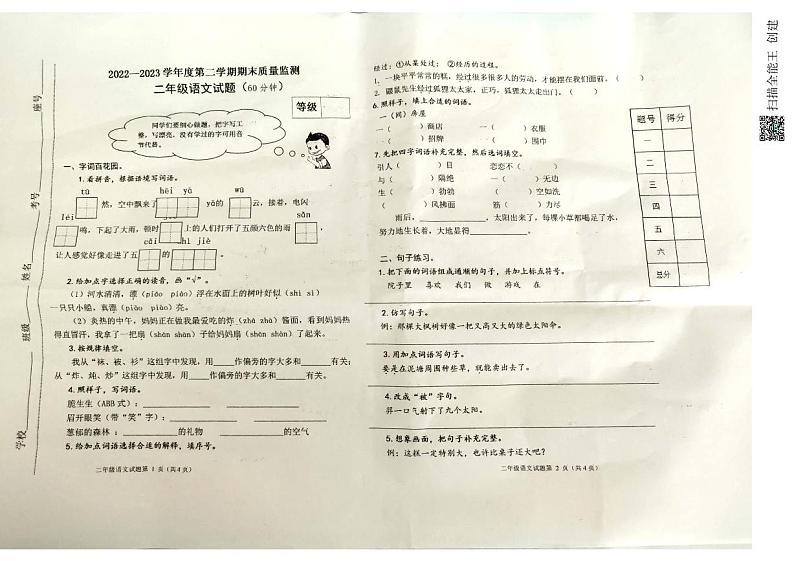 2022—2023学年度第二学期期末质量监测
二年级语文试题（60分钟）
等级
同学们要细心做题，把字写工
整，写漂亮，没有学过的字可用音
节代替。
一、字词百花园。
1.看拼音，根据语境写词语。
tū hēi yā wū
然，空中飘来了 的 云，接着，电闪
léi jiē sǎn
鸣，下起了大雨，顿时 上的人们打开了五颜六色的雨 ，
cǎi shì jiè
让人感觉好像走进了五 。
2.给加点字选择正确的读音，画“√”。
（1）河水清清，漂（piāo piào）浮在水面上的树叶好似（shì sì）
一只只小艇，真漂（piāo piào）亮。
（2）炎热的中午，妈妈正在做我最爱吃的炸（zhá zhà）酱面，看到妈妈热
得直冒汗，我拿了一把扇（shān shàn）子给妈妈扇（shān shàn）了起来。
3.按规律填空。
我从“袜、被、衫”这组字中发现，用____作偏旁的字大多和____有关；
从“炸、炖、炒”这组字中发现，用____作偏旁的字大多和____有关。
4.照样子，写词语。
脆生生（ABB式）：
眉开眼笑（带“笑”字）：
葱郁的森林：________的礼物 ________的空气
5.给加点词语选择合适的解释，填序号。
二年级语文试题第 1 页（共4页）
经过：①从某处过； ②经历的过程。
1．一块平平常常的糕，经过很多很多人的劳动，才能摆在我们面前。（ ）
2．鼹鼠先生经过狐狸太太家，正巧，狐狸太太走出门。（ ）
6.照样子，填上合适的词语。
一（间）房屋
一（ ）商店 一（ ）衣服
一（ ）招牌 一（ ）围巾
7.先把四字词语补充完整，然后选词填空。
引人（ ）目 恋恋不（ ）
与（ ）隔绝 一（ ）无边
生（ ）勃勃 （ ）空如洗
（ ）风拂面 筋（ ）力尽
雨后，________，太阳出来了，每棵小草都喝足了水，
努力地生长着，大地显得________。
二、句子练习。
1.把下面的词语组成通顺的句子，并加上标点符号。
院子里 喜欢 我们 做 游戏 在
2.仿写句子。
例：那棵大枫树好像一把又高又大的绿色太阳伞。
3.用加点词语写句子。
要是在泥塘周围种些草，就能卖出去了。
4.改成“被”字句。
羿一口气射下了九个太阳。
5.想象画面，把句子补充完整。
例：这糕一定特别大，也许比桌子还大吧？
二年级语文试题第 2 页（共4页）
题号 得分
一
二
三
四
五
六
总分
座号
考号
姓名
班级
学校
扫描全能王 创建